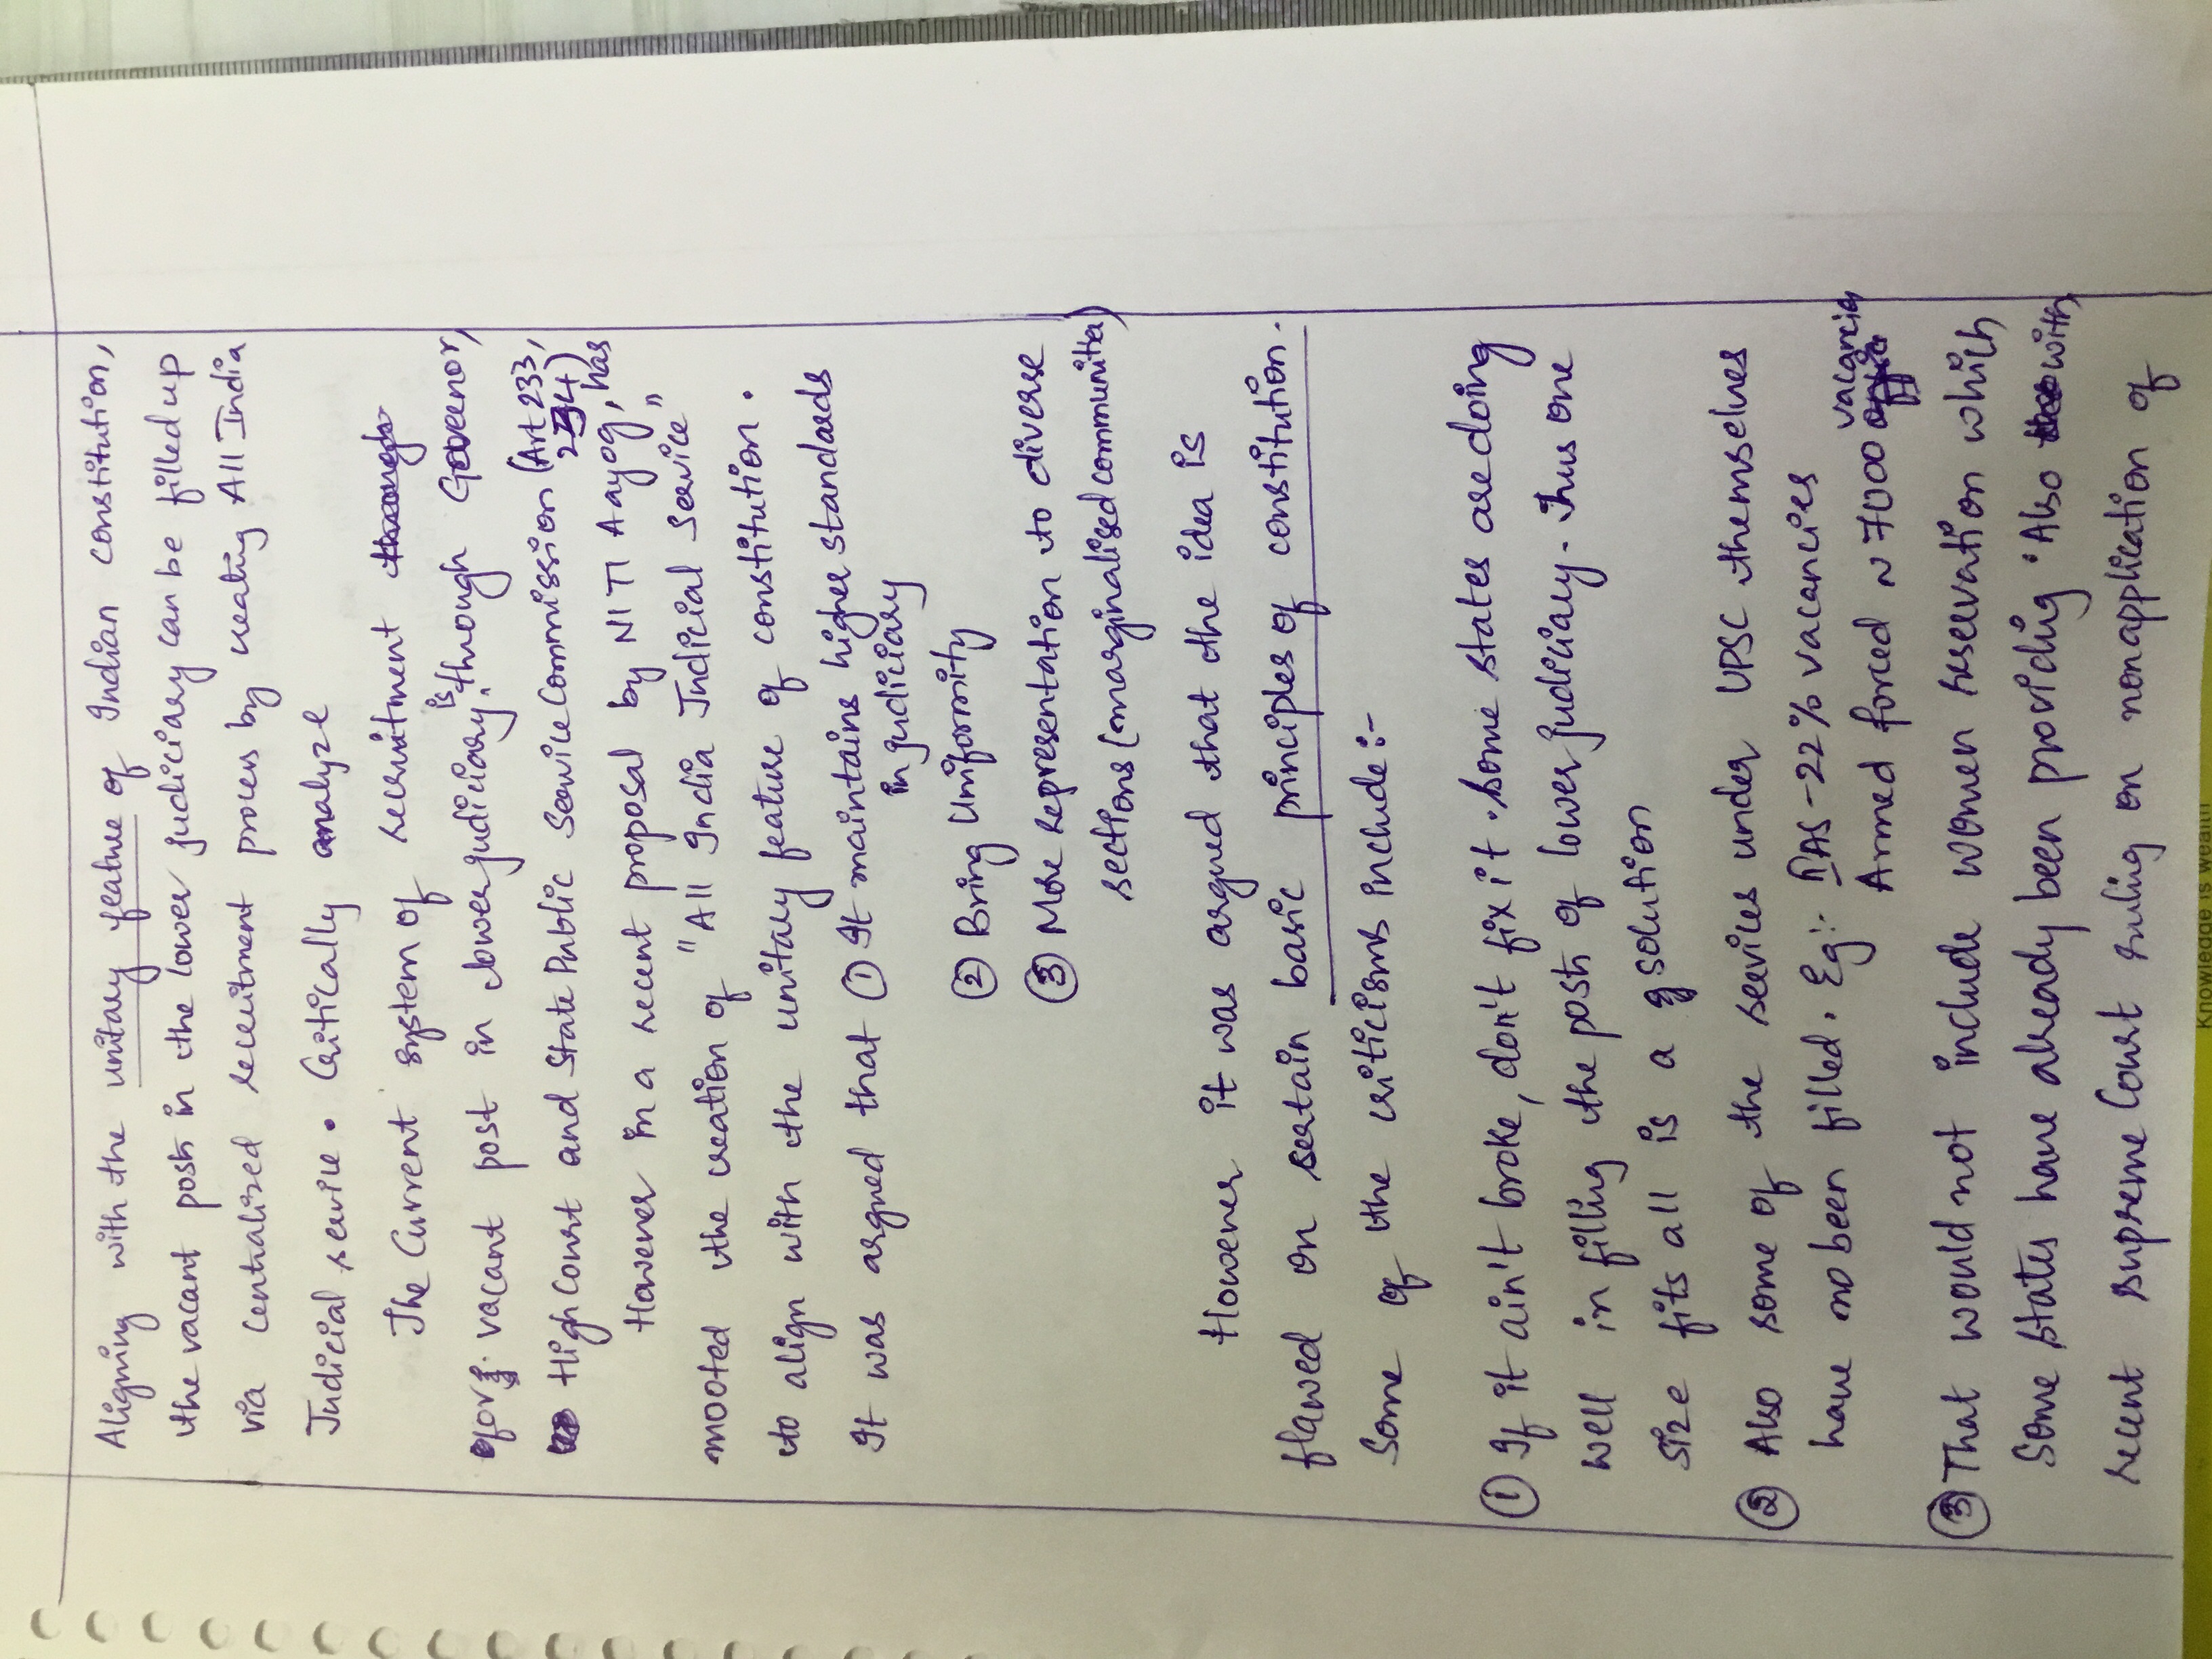 Aligning with the unitary feature of Indian constitution,
the vacant posts in the lower judiciary can be filled up
via centralised recruitment process by creating All India
Judicial service. Critically analyze
The Current system of recruitment
for vacant post in lower judiciary is through Governor,
High Court and State Public Service Commission (Art 233, 234)
However in a recent proposal by NITI Aayog, has
mooted the creation of "All India Judicial Service"
to align with the unitary feature of constitution.
It was argued that ① It maintains higher standards
in judiciary
② Bring Uniformity
③ More representation to diverse
sections (marginalised communities)
However it was argued that the idea is
flawed on certain basic principles of constitution.
Some of the criticisms include:-
① If it ain't broke, don't fix it. Some states are doing
well in filling the posts of lower judiciary. Thus one
size fits all is a solution
② Also some of the services under UPSC themselves
have no been filled. Eg:- IAS - 22% vacancies
Armed forced ~ 7000 vacancies
③ That would not include women reservation which
some states have already been providing. Also with
recent supreme Court ruling on nonapplication of
Knowledge is wealth